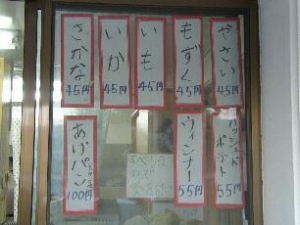 やさい
45円
もずく
45円
いも
45円
いか
45円
さかな
45円
ハッシュド
ポテト
55円
ウィンナー
55円
あげパン
100円